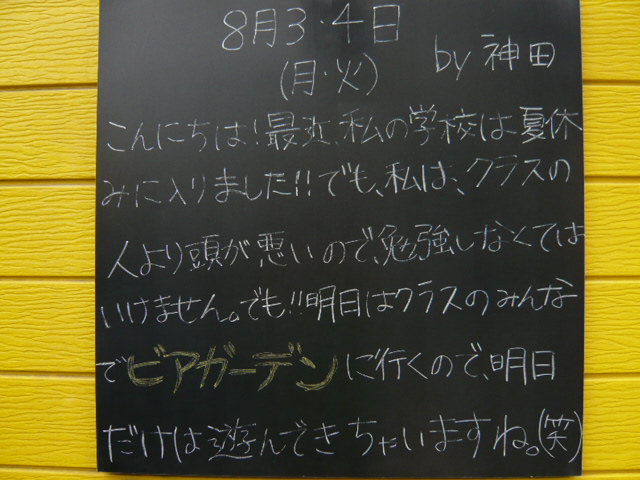 8月3・4日
(月・火)
by 神田
こんにちは!最近、私の学校は夏休
みに入りました!!でも、私は、クラスの
人より頭が悪いので、勉強しなくては
いけません。でも!!明日はクラスのみんな
でビアガーデンに行くので、明日
だけは遊んできちゃいますね。(笑)